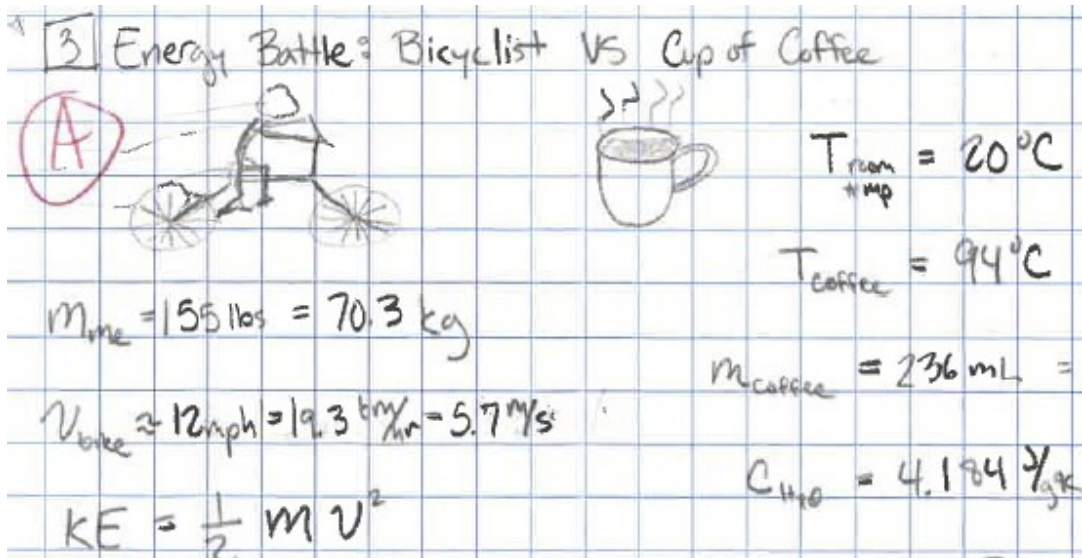 3 Energy Battle: Bicyclist VS Cup of Coffee
A
T room temp = 20°C
T coffee = 94°C
m me = 155 lbs = 70.3 kg
m coffee = 236 mL =
V bike ≈ 12mph = 19.3 km/hr = 5.7 m/s
C H2O = 4.184 J/gK
KE = 1/2 m v²